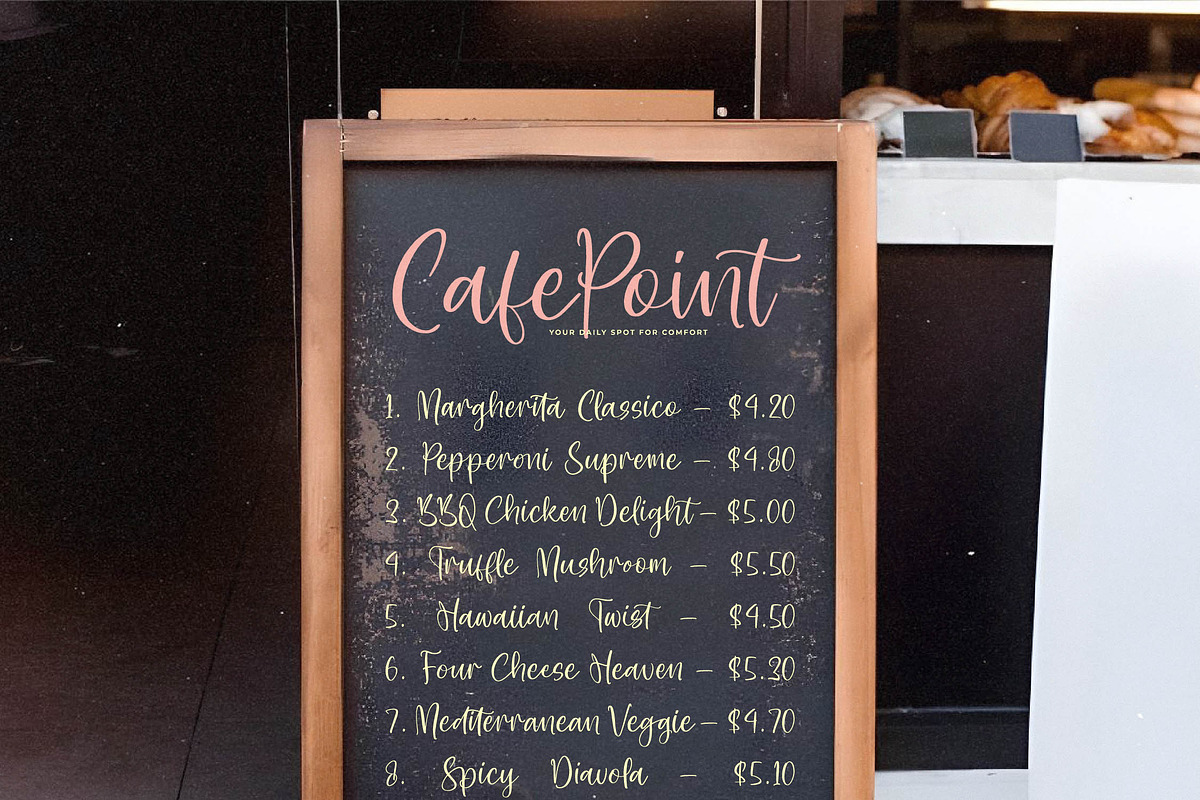 CafePoint
YOUR DAILY SPOT FOR COMFORT
1. Margherita Classico – $4.20
2. Pepperoni Supreme – $4.80
3. BBQ Chicken Delight – $5.00
4. Truffle Mushroom – $5.50
5. Hawaiian Twist – $4.50
6. Four Cheese Heaven – $5.30
7. Mediterranean Veggie – $4.70
8. Spicy Diavola – $5.10